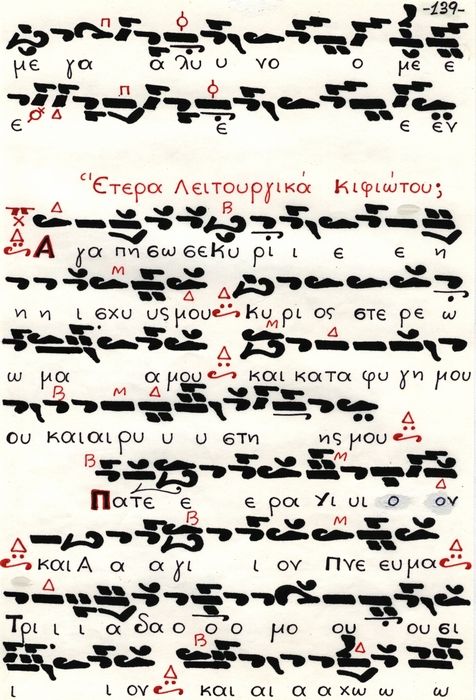 -139-
με γα α λυ υ νο ο με ε
ε ε ε εν
Ἕτερα Λειτουργικά Κιφιώτου;
Α γα πη σω σε Κυ ρι ι ε ε η
η η ι σχυ υς μου Κυ ρι ος στε ρε ω
ω μα α μου και κα τα φυ γη μου
ου και αι ρυ υ υ στη ης μου
Πα τε ε ε ρα Υι υι ο ον
και Α α α γι ι ον Πνε ευ μα
Τρι ι ι α δα ο ο ο μο ου ου σι
ι ι ον και αι α α χω ω ω ω